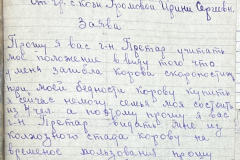 От гр. с кози Яромовой Ирини Сергеевн.
Заява
Прошу я вас г-н Претар учитать
мое положение в виду того что
у меня загибла корова скоропостиж
при моей бедности корову купить
я сейчас немогу семья моя состоить
из 4 чел. а поэтому прошу я вас
г-н Претар видать мне из
колхозного стада корову на
временое пользования прошу